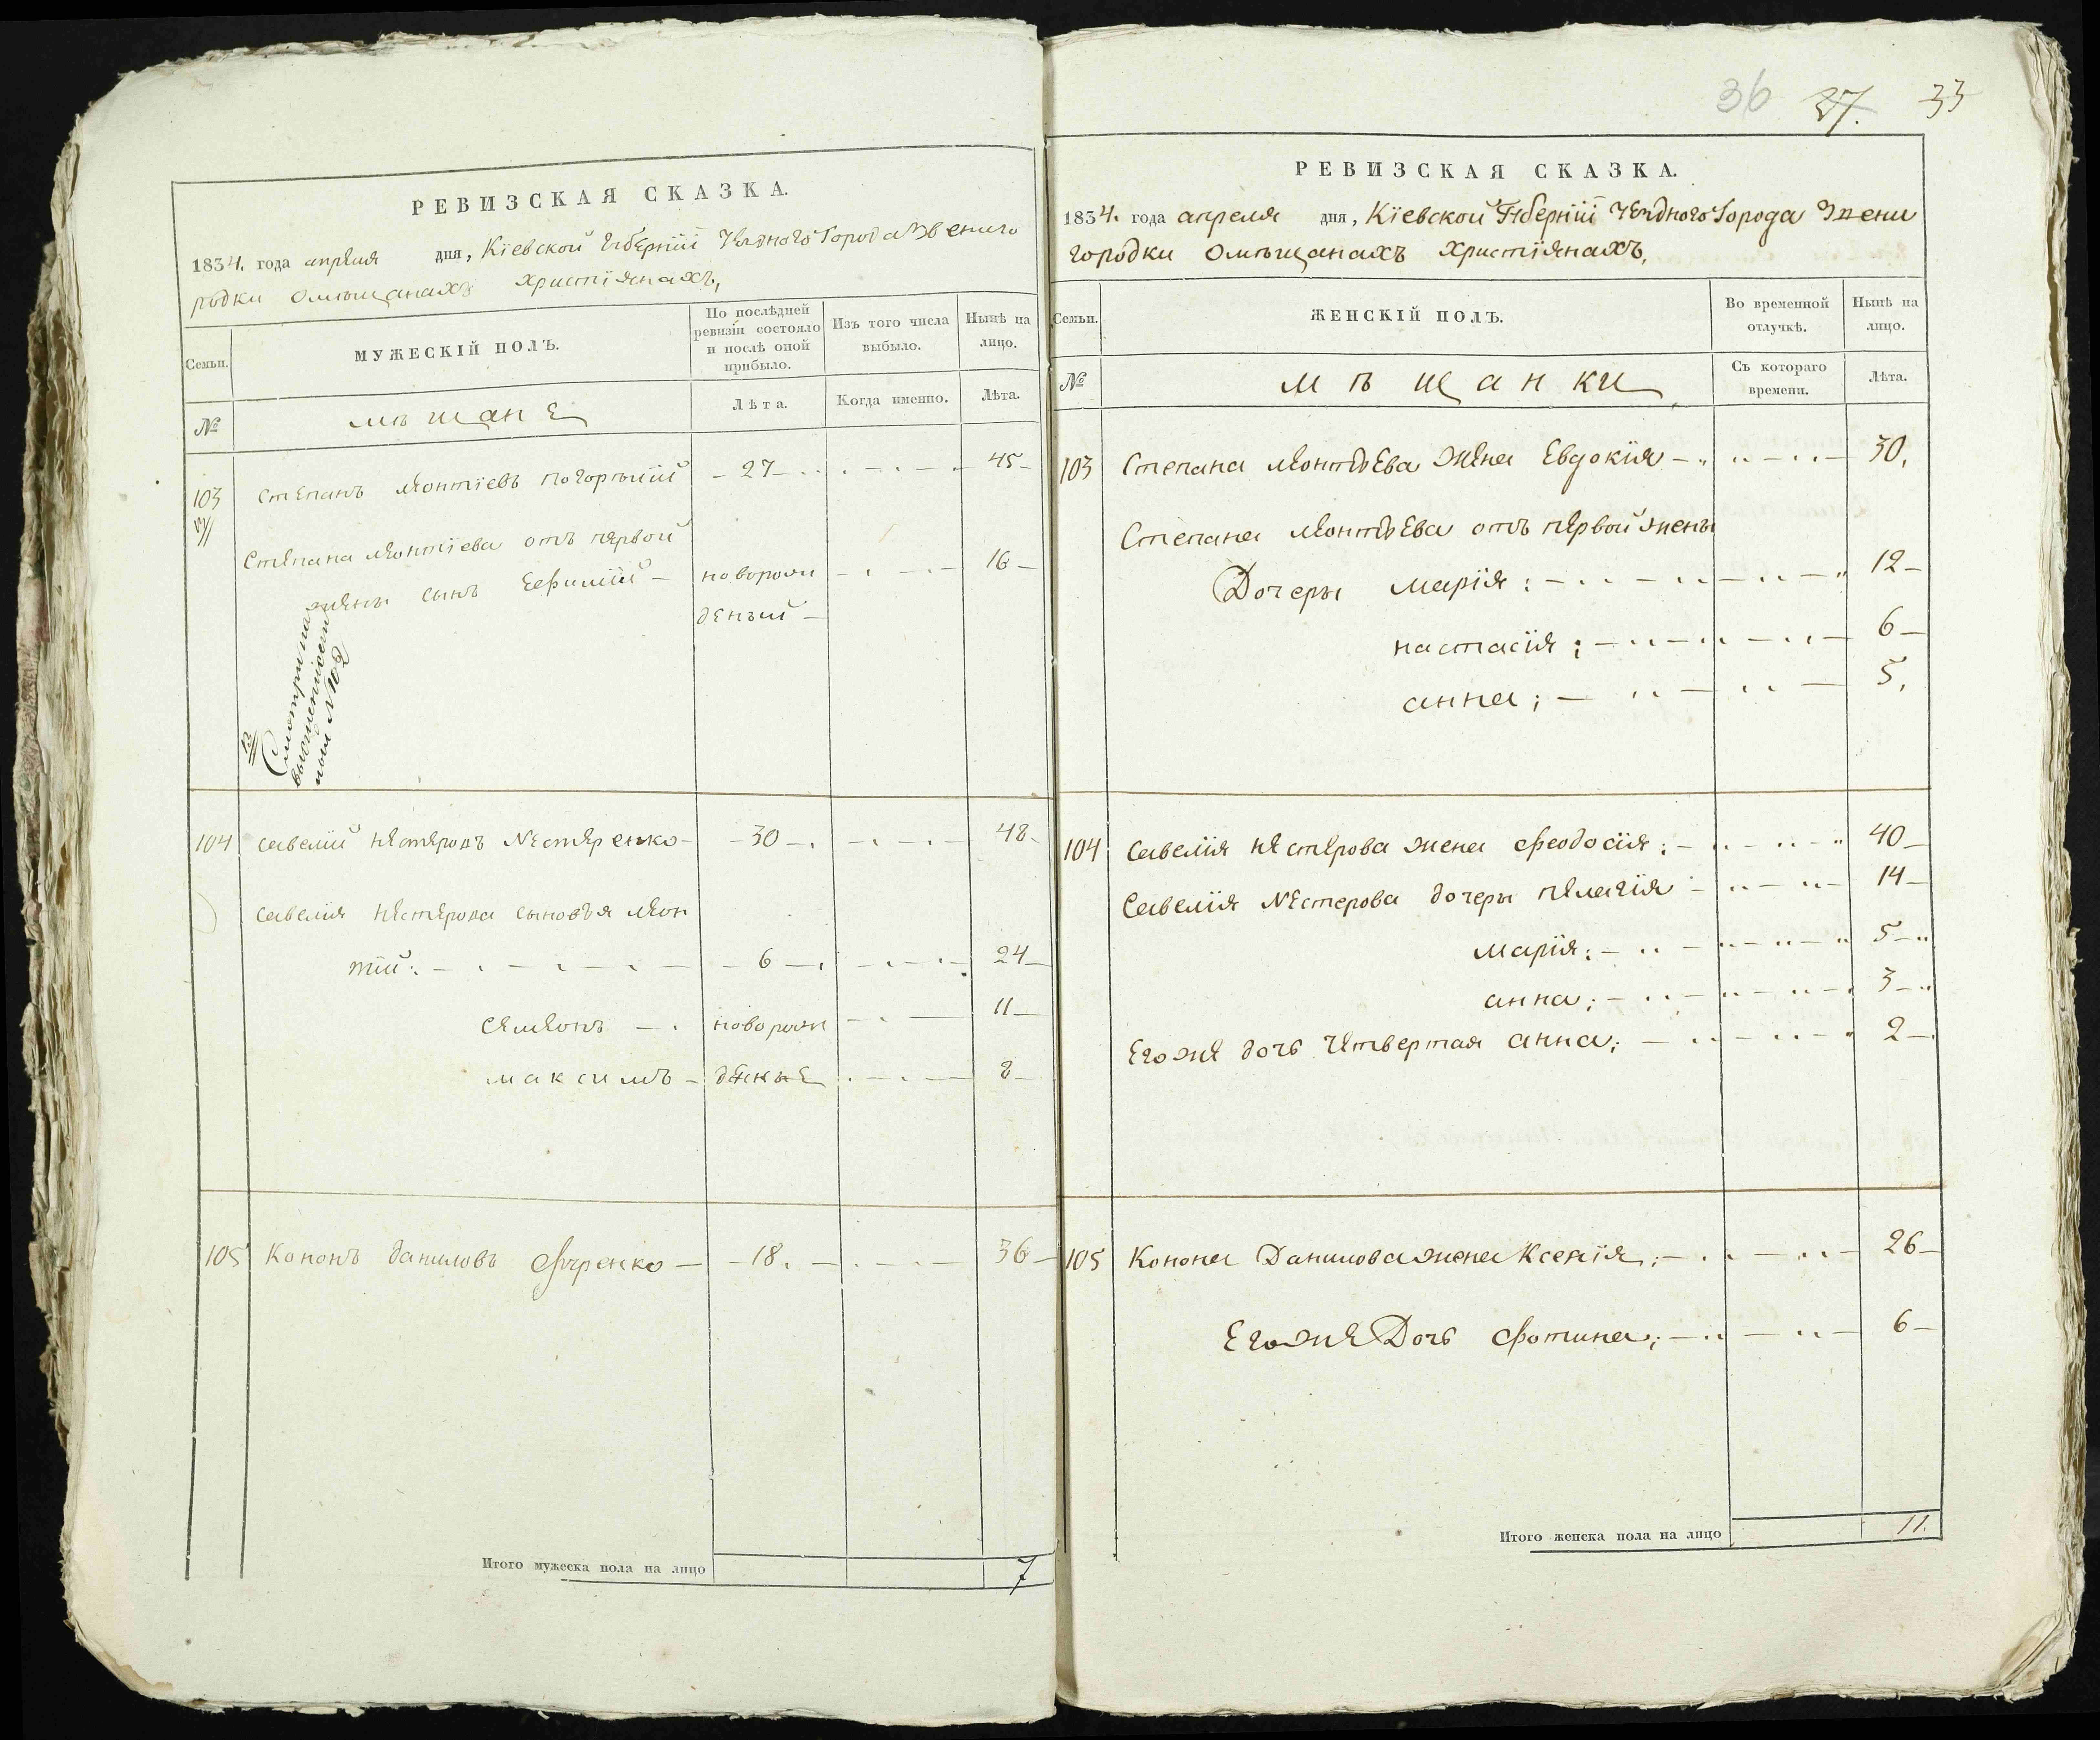 РЕВИЗСКАЯ СКАЗКА.
1834. года апреля дня, Кіевской Губерніи Уезднаго Города Звениго
родки Омѣщанахъ Христіянахъ,
Семьи. МУЖЕСКІЙ ПОЛЪ. По послѣдней ревизіи состояло и послѣ оной прибыло. Изъ того числа выбыло. Нынѣ на лицо.
№ мѣщане Лѣта. Когда именно. Лѣта.
103 Степанъ Леонтіевъ Погорѣлый – 27 – 45 –
Степана Леонтіева отъ первой
жены сынъ Ефимій – новорож 16 –
деный –
Смотри на
104 Савелій Нестеровъ Нестеренко – – 30 – 48 –
Савелія Нестерова сыновья Леон
тій: – 6 – 24 –
Семенъ – новорож 11 –
Максимъ – денные 8 –
105 Кононъ Даниловъ – 18. – 36 –
Итого мужеска пола на лицо 7
36 37. 33
РЕВИЗСКАЯ СКАЗКА.
1834. года апреля дня, Кіевской Губерніи Уезднаго Города Звени
городки Омѣщанахъ Христіянахъ,
Семьи. ЖЕНСКІЙ ПОЛЪ. Во временной отлучкѣ. Нынѣ на лицо.
№ мѣщанки Съ котораго времени. Лѣта.
103 Степана Леонтьева Жена Евдокия – 30.
Степана Леонтьева отъ первой жены
Дочеры Марія: – 12 –
Настасія; – 6 –
Анна; – 5,
104 Савелія Нестерова жена Феодосія: – 40 –
Савелія Нестерова дочеры Пелагія – 14 –
Марія: – 5 –
Анна; – 3 –
Егоже дочь Четвертая Анна; – 2 –
105 Конона Данилова жена Ксенія; – 26 –
Егоже Дочь Фотина; – 6 –
Итого женска пола на лицо 11.